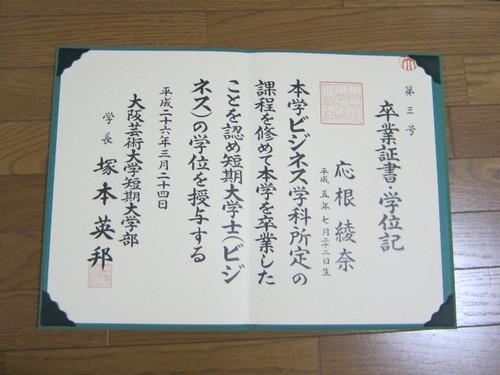 第三号
卒業証書・学位記
応根綾奈
平成五年七月二十二日生
本学ビジネス学科所定の
課程を修めて本学を卒業した
ことを認め短期大学士(ビジ
ネス)の学位を授与する
平成二十六年三月二十四日
大阪芸術大学短期大学部
学長 塚本英邦